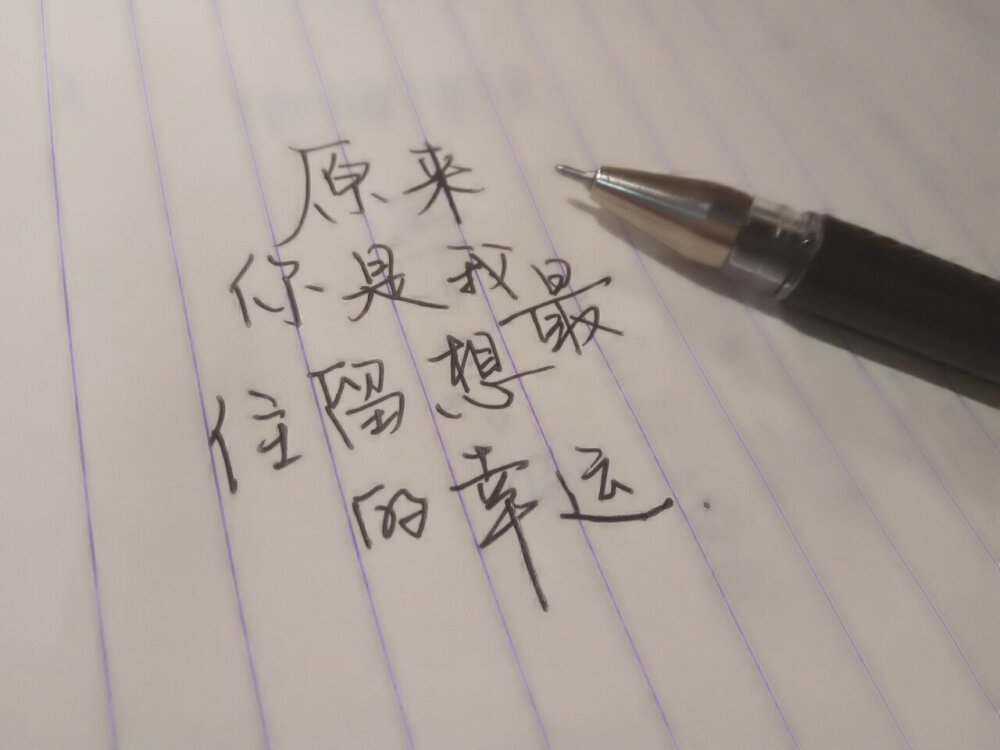 原来
你是我最
想留住
的幸运.